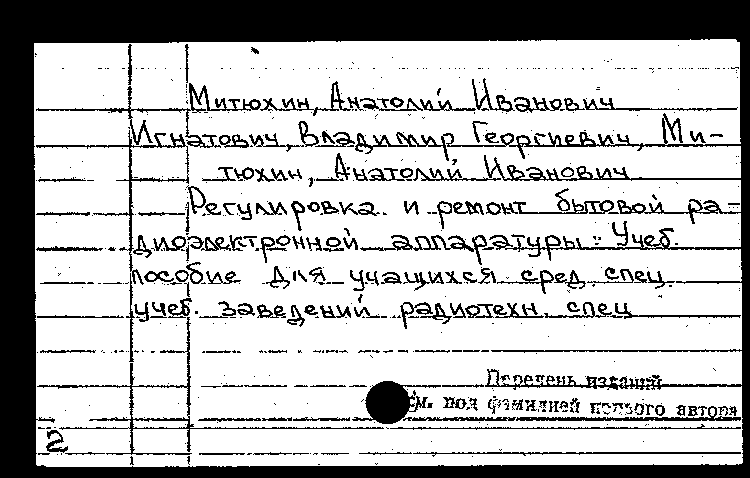 Митюхин, Анатолий Иванович
Игнатович, Владимир Георгиевич, Ми-
тюхин, Анатолий Иванович
Регулировка и ремонт бытовой ра-
диоэлектронной аппаратуры: Учеб.
пособие для учащихся сред. спец.
учеб. заведений радиотехн. спец
Перечень изданий
см. под фамилией первого автора
2